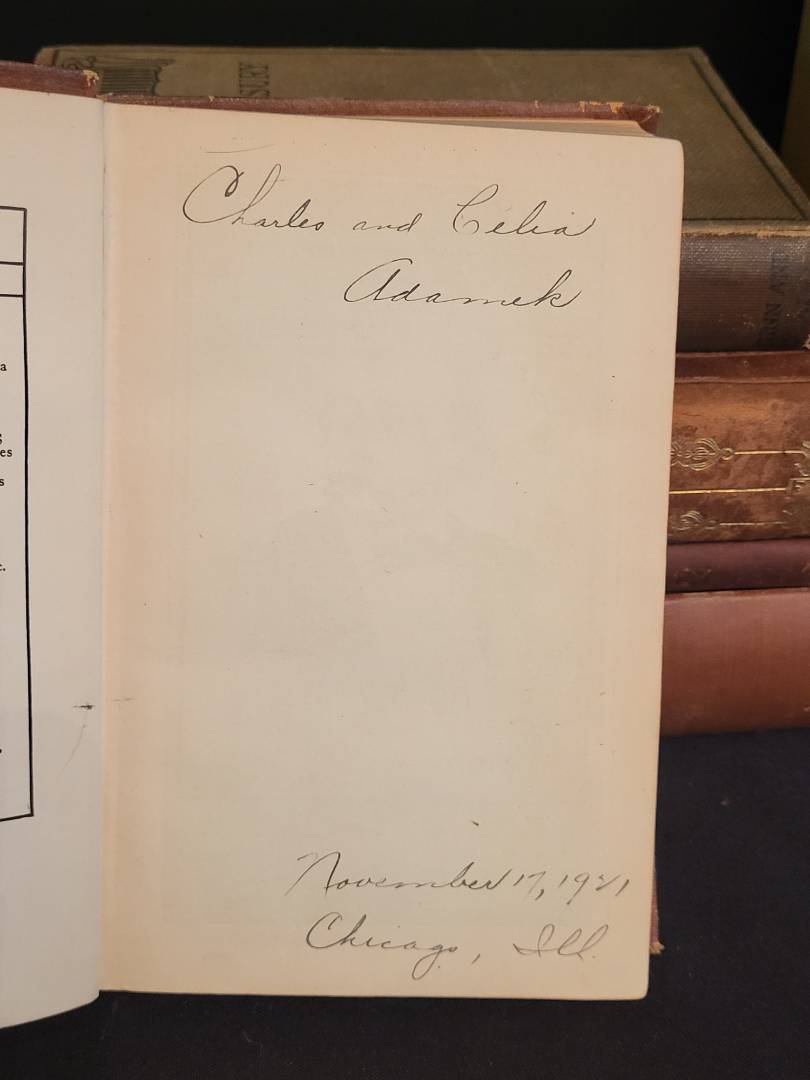 SURY
Charles and Celia
Adamek
a
es
s
November 17, 1921
Chicago, Ill.